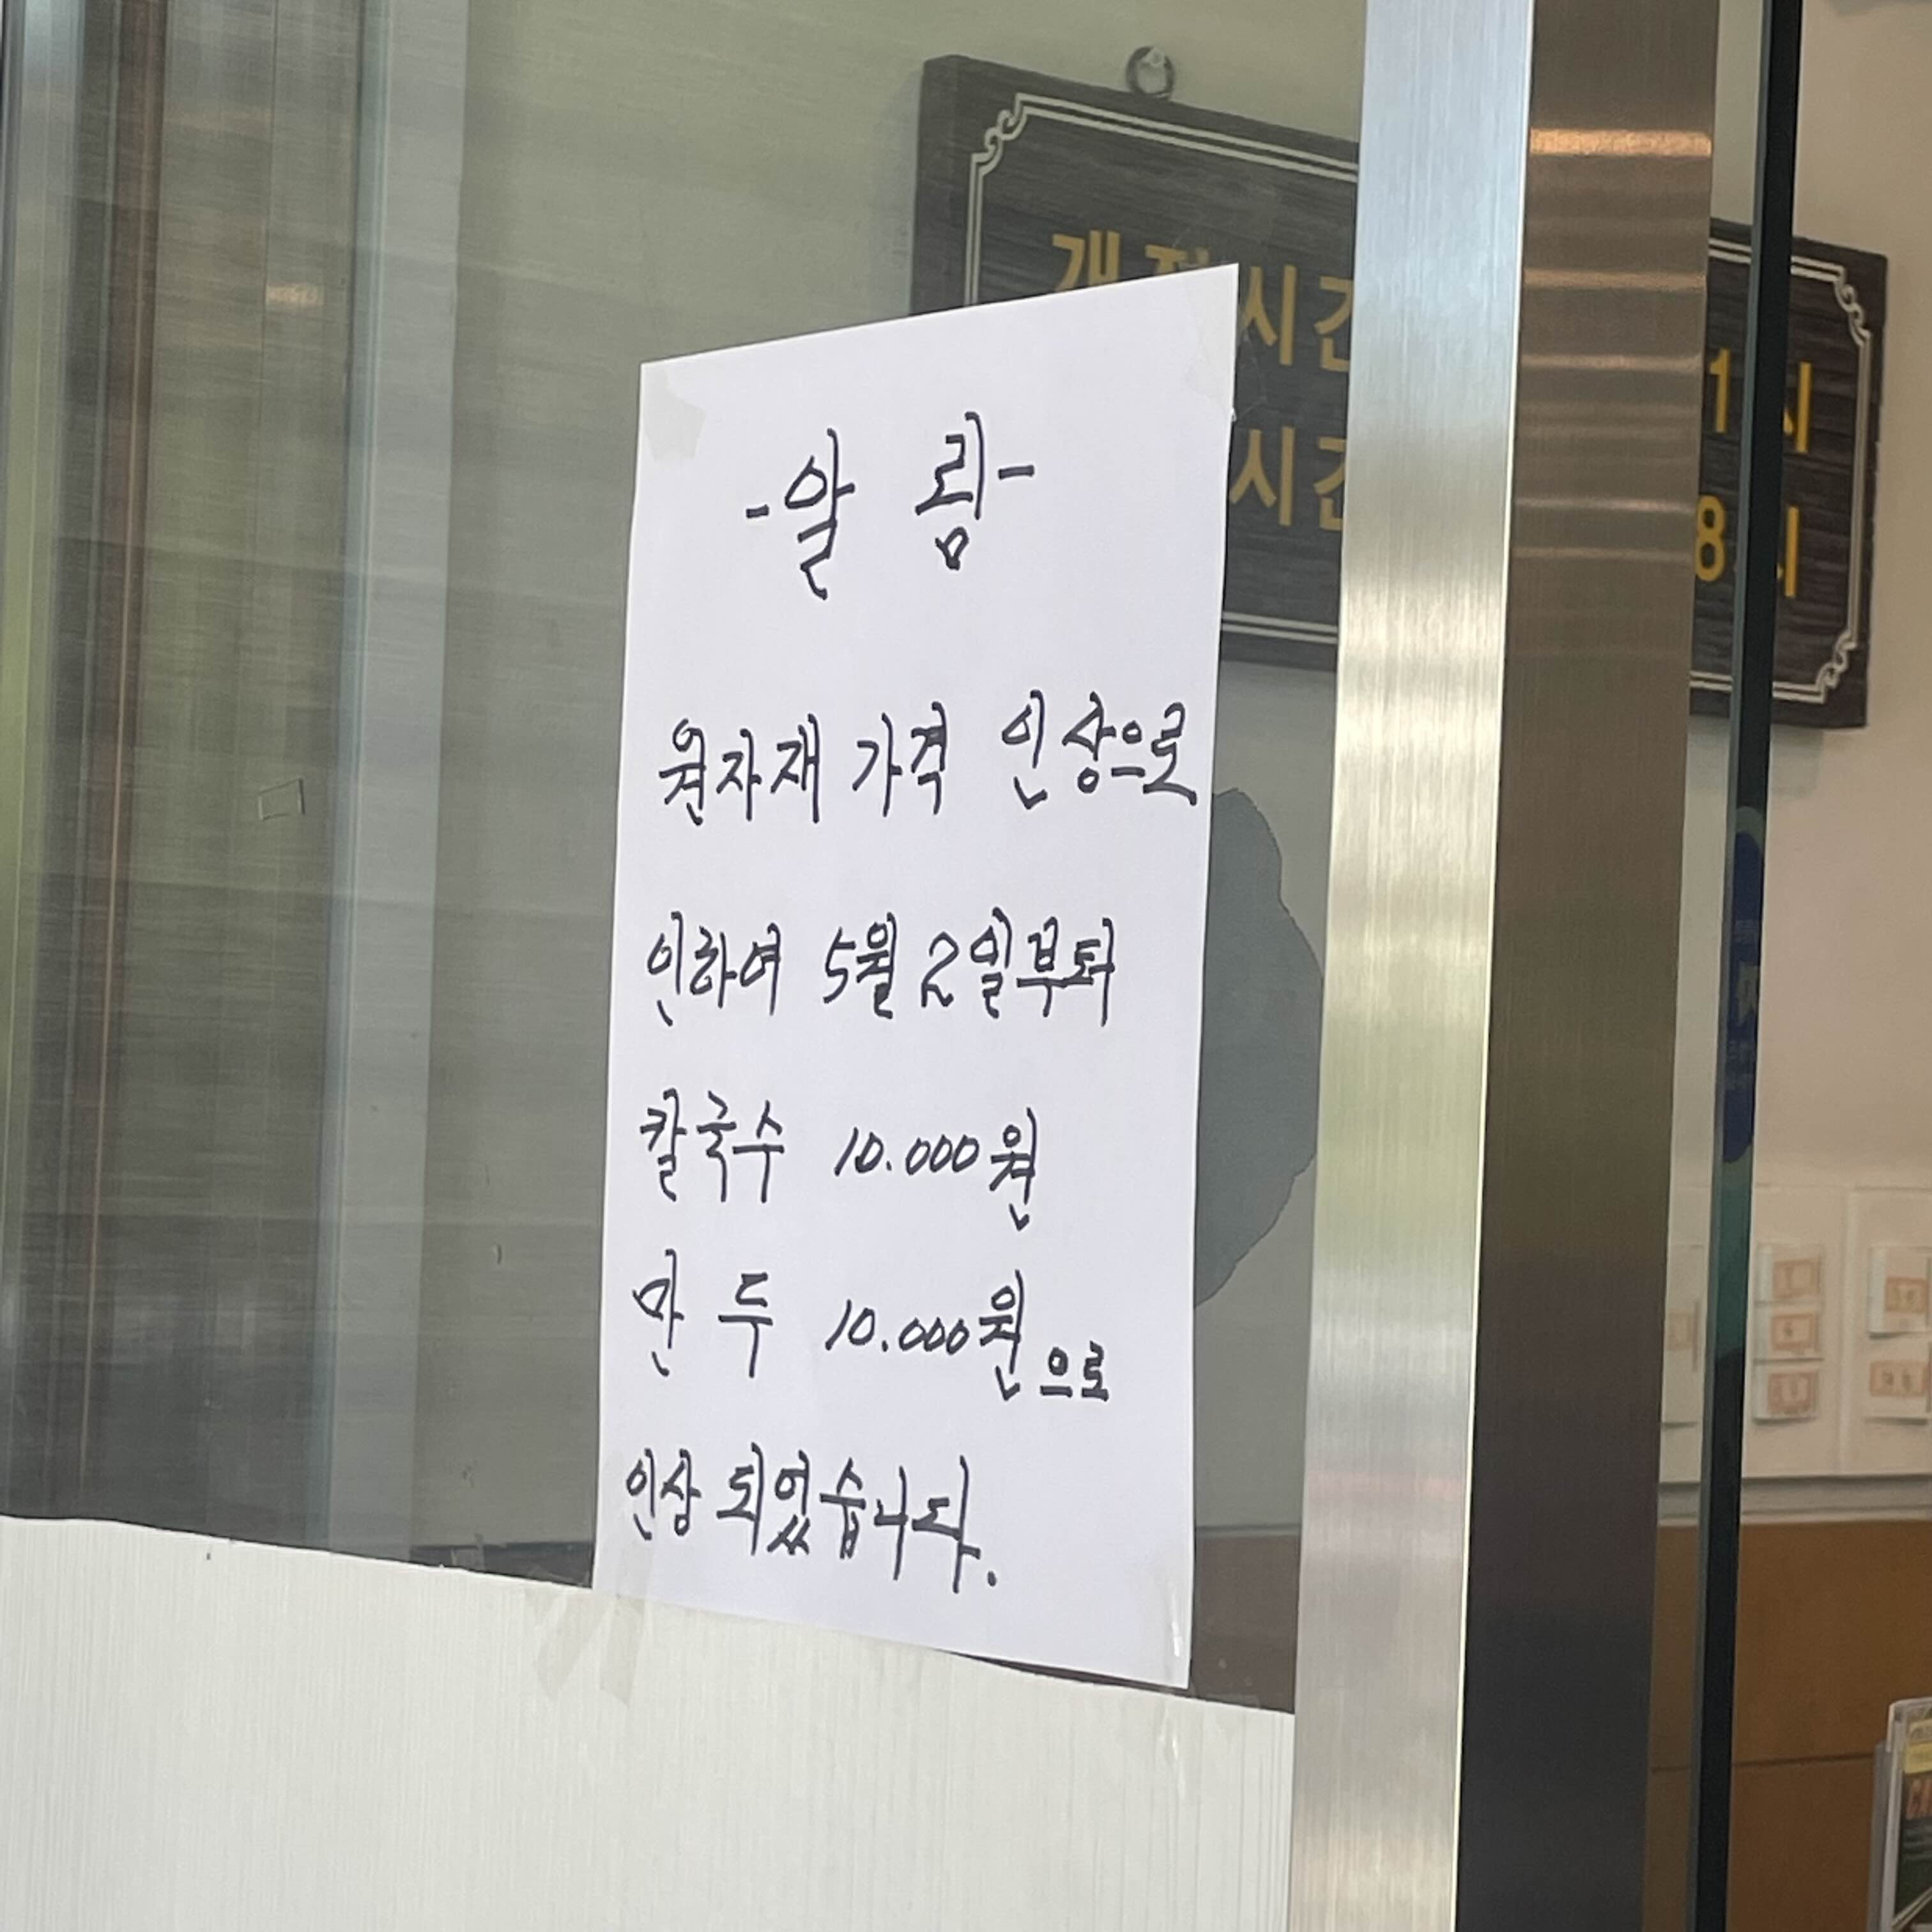 -알 림-
원자재 가격 인상으로
인하여 5월 2일부터
칼국수 10.000원
만 두 10.000원으로
인상 되었습니다.
시간
1시
시간
8시